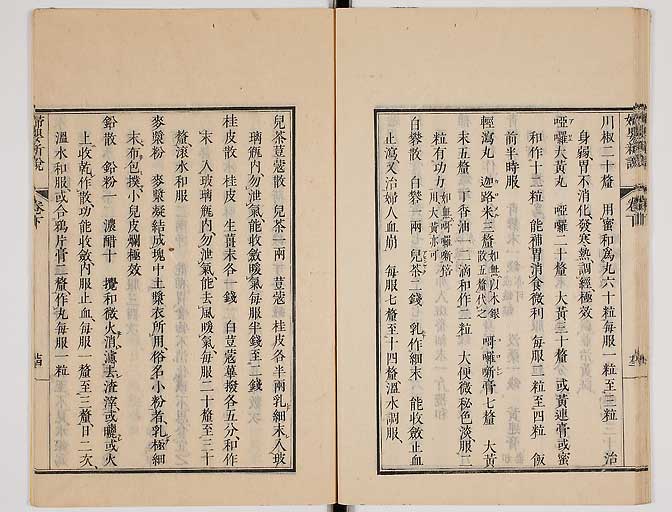 川椒二十釐　用蜜和爲丸六十粒每服一粒至三粒　三十治
身弱胃不消化發寒熱調經極效
啞囉大黃丸　啞囉二十釐大黃三十釐分或黃連膏或蜜
和作十二粒能補胃消食微利　每服二粒至四粒　飯
前半時服
輕瀉丸　迦路米三釐如無以水銀散五釐代之　呵囉噺膏七釐　大黃
末五釐　丁香油一二滴和作三粒　大便微秘色淡服二
粒有功力如無呵囉噺倍用大黃亦可
白礬散　白礬一兩　兒茶二錢　乳作細末　能收斂止血
止瀉又治婦人血崩　每服七釐至十四釐溫水調服
兒茶荳蔻散　兒茶一兩　荳蔻　桂皮各半兩乳細末入玻
璃瓶內勿泄氣能收斂暖氣每服半錢至二錢
桂皮散　桂皮　生薑末各一錢　白荳蔻蓽撥各五分和作
末　入玻璃瓶內勿泄氣能去風暖氣每服二十釐至三十
釐滾水和服
麥槳粉　麥槳凝結成塊中土槳衣所用俗名小粉者乳極細
末布包撲小兒皮爛極效
鉛散　鉛粉一　濃醋十　攪和微火消濾去渣滓或曬或火
上收乾作散功能收斂內服止血每服一釐至三釐日二次
溫水和服或合鴉片膏二釐作丸每服一粒
婦嬰新說